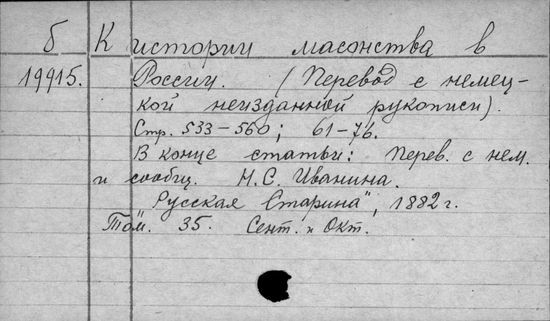 б К истории масонства в
19915. России. (Перевод с немец-
кой неизданной рукописи).
Стр. 533-560; 61-76.
В конце статьи: Перев. с нем.
и сообщ. Н.С. Иванина.
Русская Старина", 1882 г.
Том. 35. Сент. и Окт.